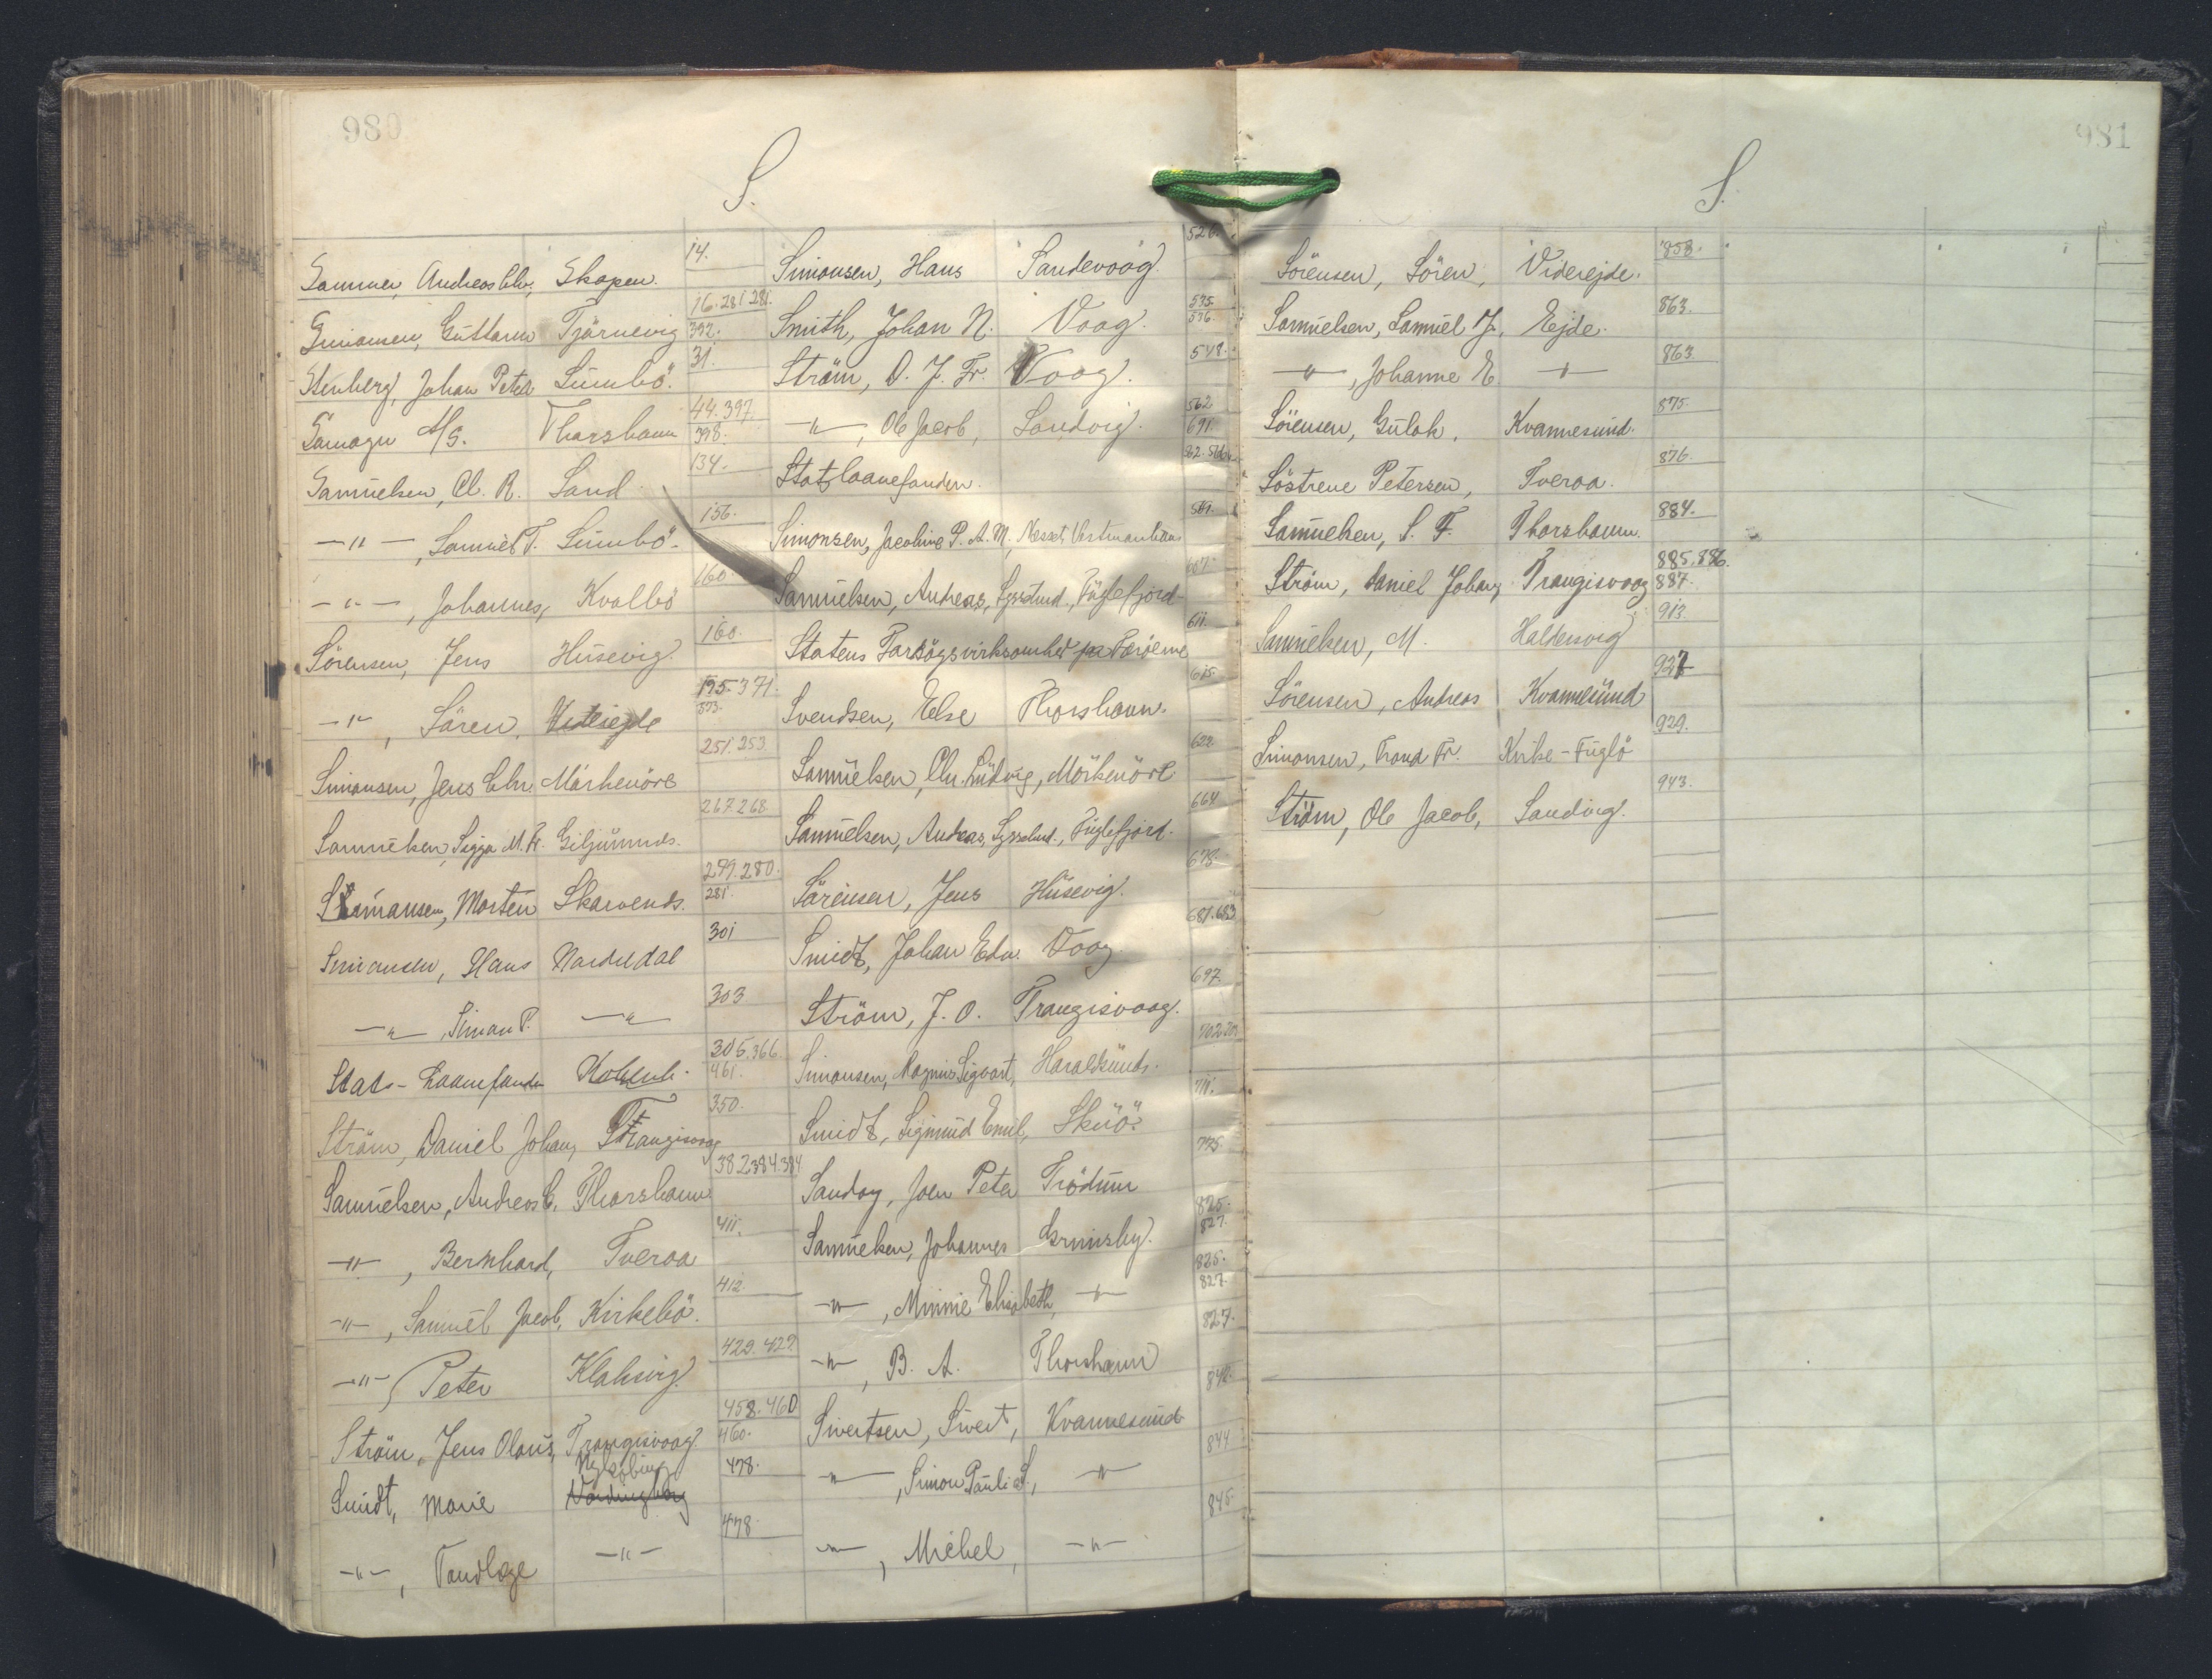 980
S.
Sammer, Andreas Chr., Skopen. 14.
Simonsen, Guttorm Tjörnevig 16. 281 281. 392.
Stenberg, Johan Peter Sumbö. 31.
Samagn A/S. Thorshavn 44. 397. 398.
Samuelsen, Cl. R. Sand 134.
-"-, Samuel T. Sumbö. 156.
-"-, Johannes, Kvalbö 160.
Sörensen, Jens Húsevig. 160.
-"-, Sören, Videiejde 195. 371. 373.
Simonsen, Jens Chr. Mörkenöre 251. 253.
Samuelsen, Sigga M. Fr. Giljumnds. 267. 268.
Simonsen, Morten Skarvends. 279. 280. 281.
Simonsen, Hans Nordredal 301
-"-, Simon P. -"- 303
Stats-Laanefonden Kbhvn. 305. 366. 461.
Ström, Daniel Johan, Trangisvaag 350.
Samuelsen, Andreas C. Thorshavn 382 384. 384
-"-, Bernhard, Tveraa 411.
-"-, Samuel Jacob, Kirkebö. 412.
-"-, Peter Klaksvig. 429. 429.
Ström, Jens Olaus, Trangisvaag. 458. 460 460.
Smidt, Marie Nykøbing Vordingborg 478.
-"-, Tandlæge -"- 478.
Simonsen, Hans Sandevaag. 526.
Smith, Johan N. Vaag. 535. 536.
Ström, D. J. Fr. Vaag. 548.
-"-, Ole Jacob, Sandvig. 562 691
Statslaanefonden. 562. 566.
Simonsen, Jacobine P. A. M., Nesset, Vestmanhavn 569.
Samuelsen, Andreas, Sysselmd., Fuglefjord 607.
Statens Forsögsvirksomhed paa Færöerne 611.
Svendsen, Else Thorshavn. 615.
Samuelsen, Chr. Ludvig, Mörkenöre 622.
Samuelsen, Andreas, Sysselmd., Fuglefjord. 664
Sörensen, Jens Húsevig. 678.
Smidt, Johan Edv. Vaag. 681. 683
Ström, J. O. Trangisvaag. 697.
Simonsen, Magnus Sigvart, Haraldsunds. 702
Smidt, Sigmund Emil, Skuö. 711.
Sandoy, Joen Peter Trödum 775.
Samuelsen, Johannes Grimsby. 825. 827.
-"-, Minnie Elisabeth, -"- 825. 827.
-"-, B. A. Thorshavn 827.
Sivertsen, Sivert, Kvannesund 842.
-"-, Simon Pauli S., -"- 844
-"-, Michel, -"- 845.
981
S.
Sörensen, Sören, Viderejde. 858.
Samuelsen, Samuel J., Ejde. 863.
-"-, Johanne E. -"- 863.
Sörensen, Gulak, Kvannesund. 875.
Söstrene Petersen, Tveraa. 876.
Samuelsen, S. F. Thorshavn. 884.
Ström, Daniel Johan, Trangisvaag 885. 886. 887.
Samuelsen, M. Haldersvig 913.
Sörensen, Andreas Kvannesund 927
Simonsen, Trond Fr. Kirke-Fuglö 929.
Ström, Ole Jacob, Sandvig. 943.